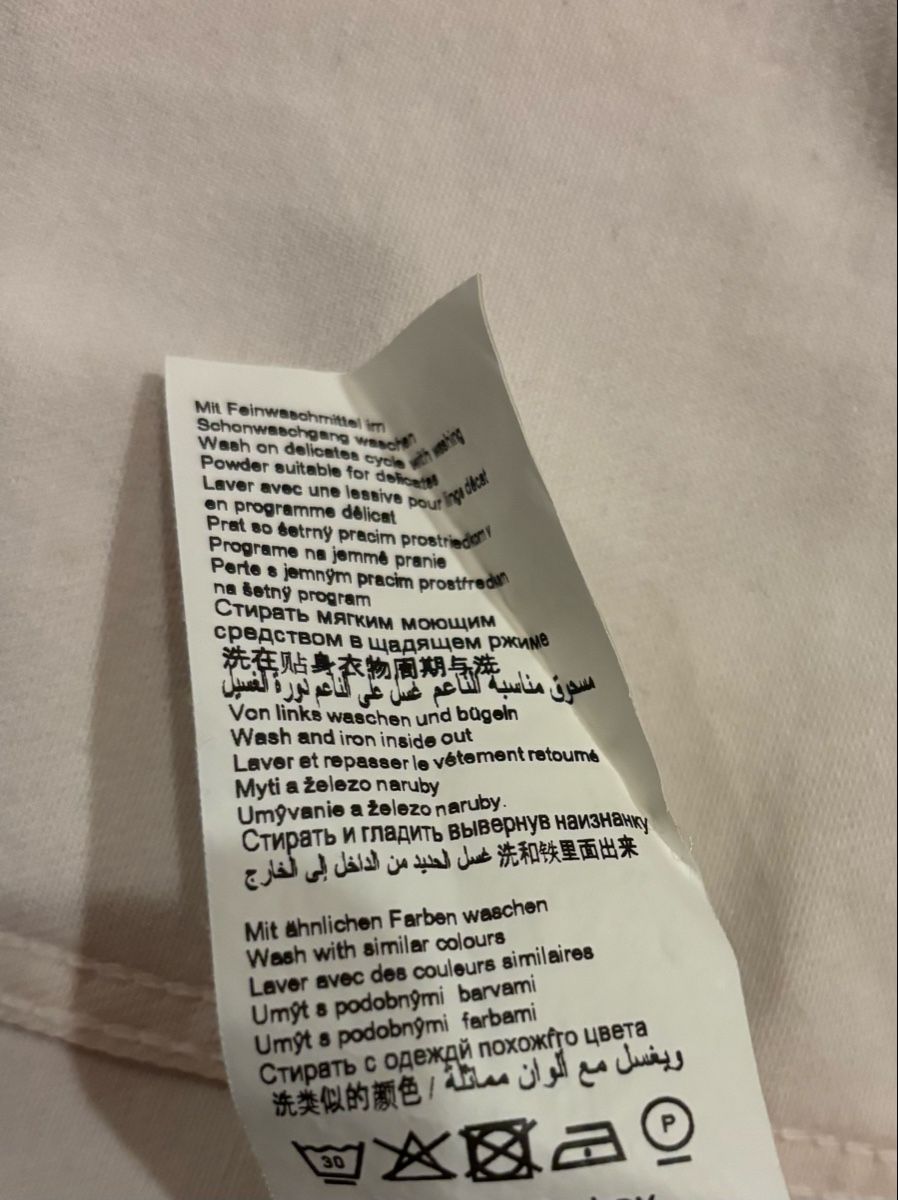 Mit Feinwaschmittel im
Schonwaschgang waschen
Wash on delicates cycle with washing
Powder suitable for delicates
Laver avec une lessive pour linge décat
en programme délicat
Prat so šetrný pracim prostriedkom v
Programe na jemmé pranie
Perte s jemným pracim prostředun
na šetný program
Стирать мягким моющим
средством в щадящем ржиме
洗在贴身衣物周期与洗
مسحوق مناسبة الناعم غسل على الناعم دورة الغسيل
Von links waschen und bügeln
Wash and iron inside out
Laver et repasser le vétement retoumé
Myti a železo naruby
Umývanie a železo naruby.
Стирать и гладить вывернув наизнанку
غسل الحديد من الداخل إلى الخارج 洗和铁里面出来
Mit ähnlichen Farben waschen
Wash with similar colours
Laver avec des couleurs similaires
Umŷt s podobnŷmi barvami
Umŷt s podobnŷmi farbami
Стирать с одеждй похожгго цвета
洗类似的颜色 / ويغسل مع ألوان مماثلة
30
P